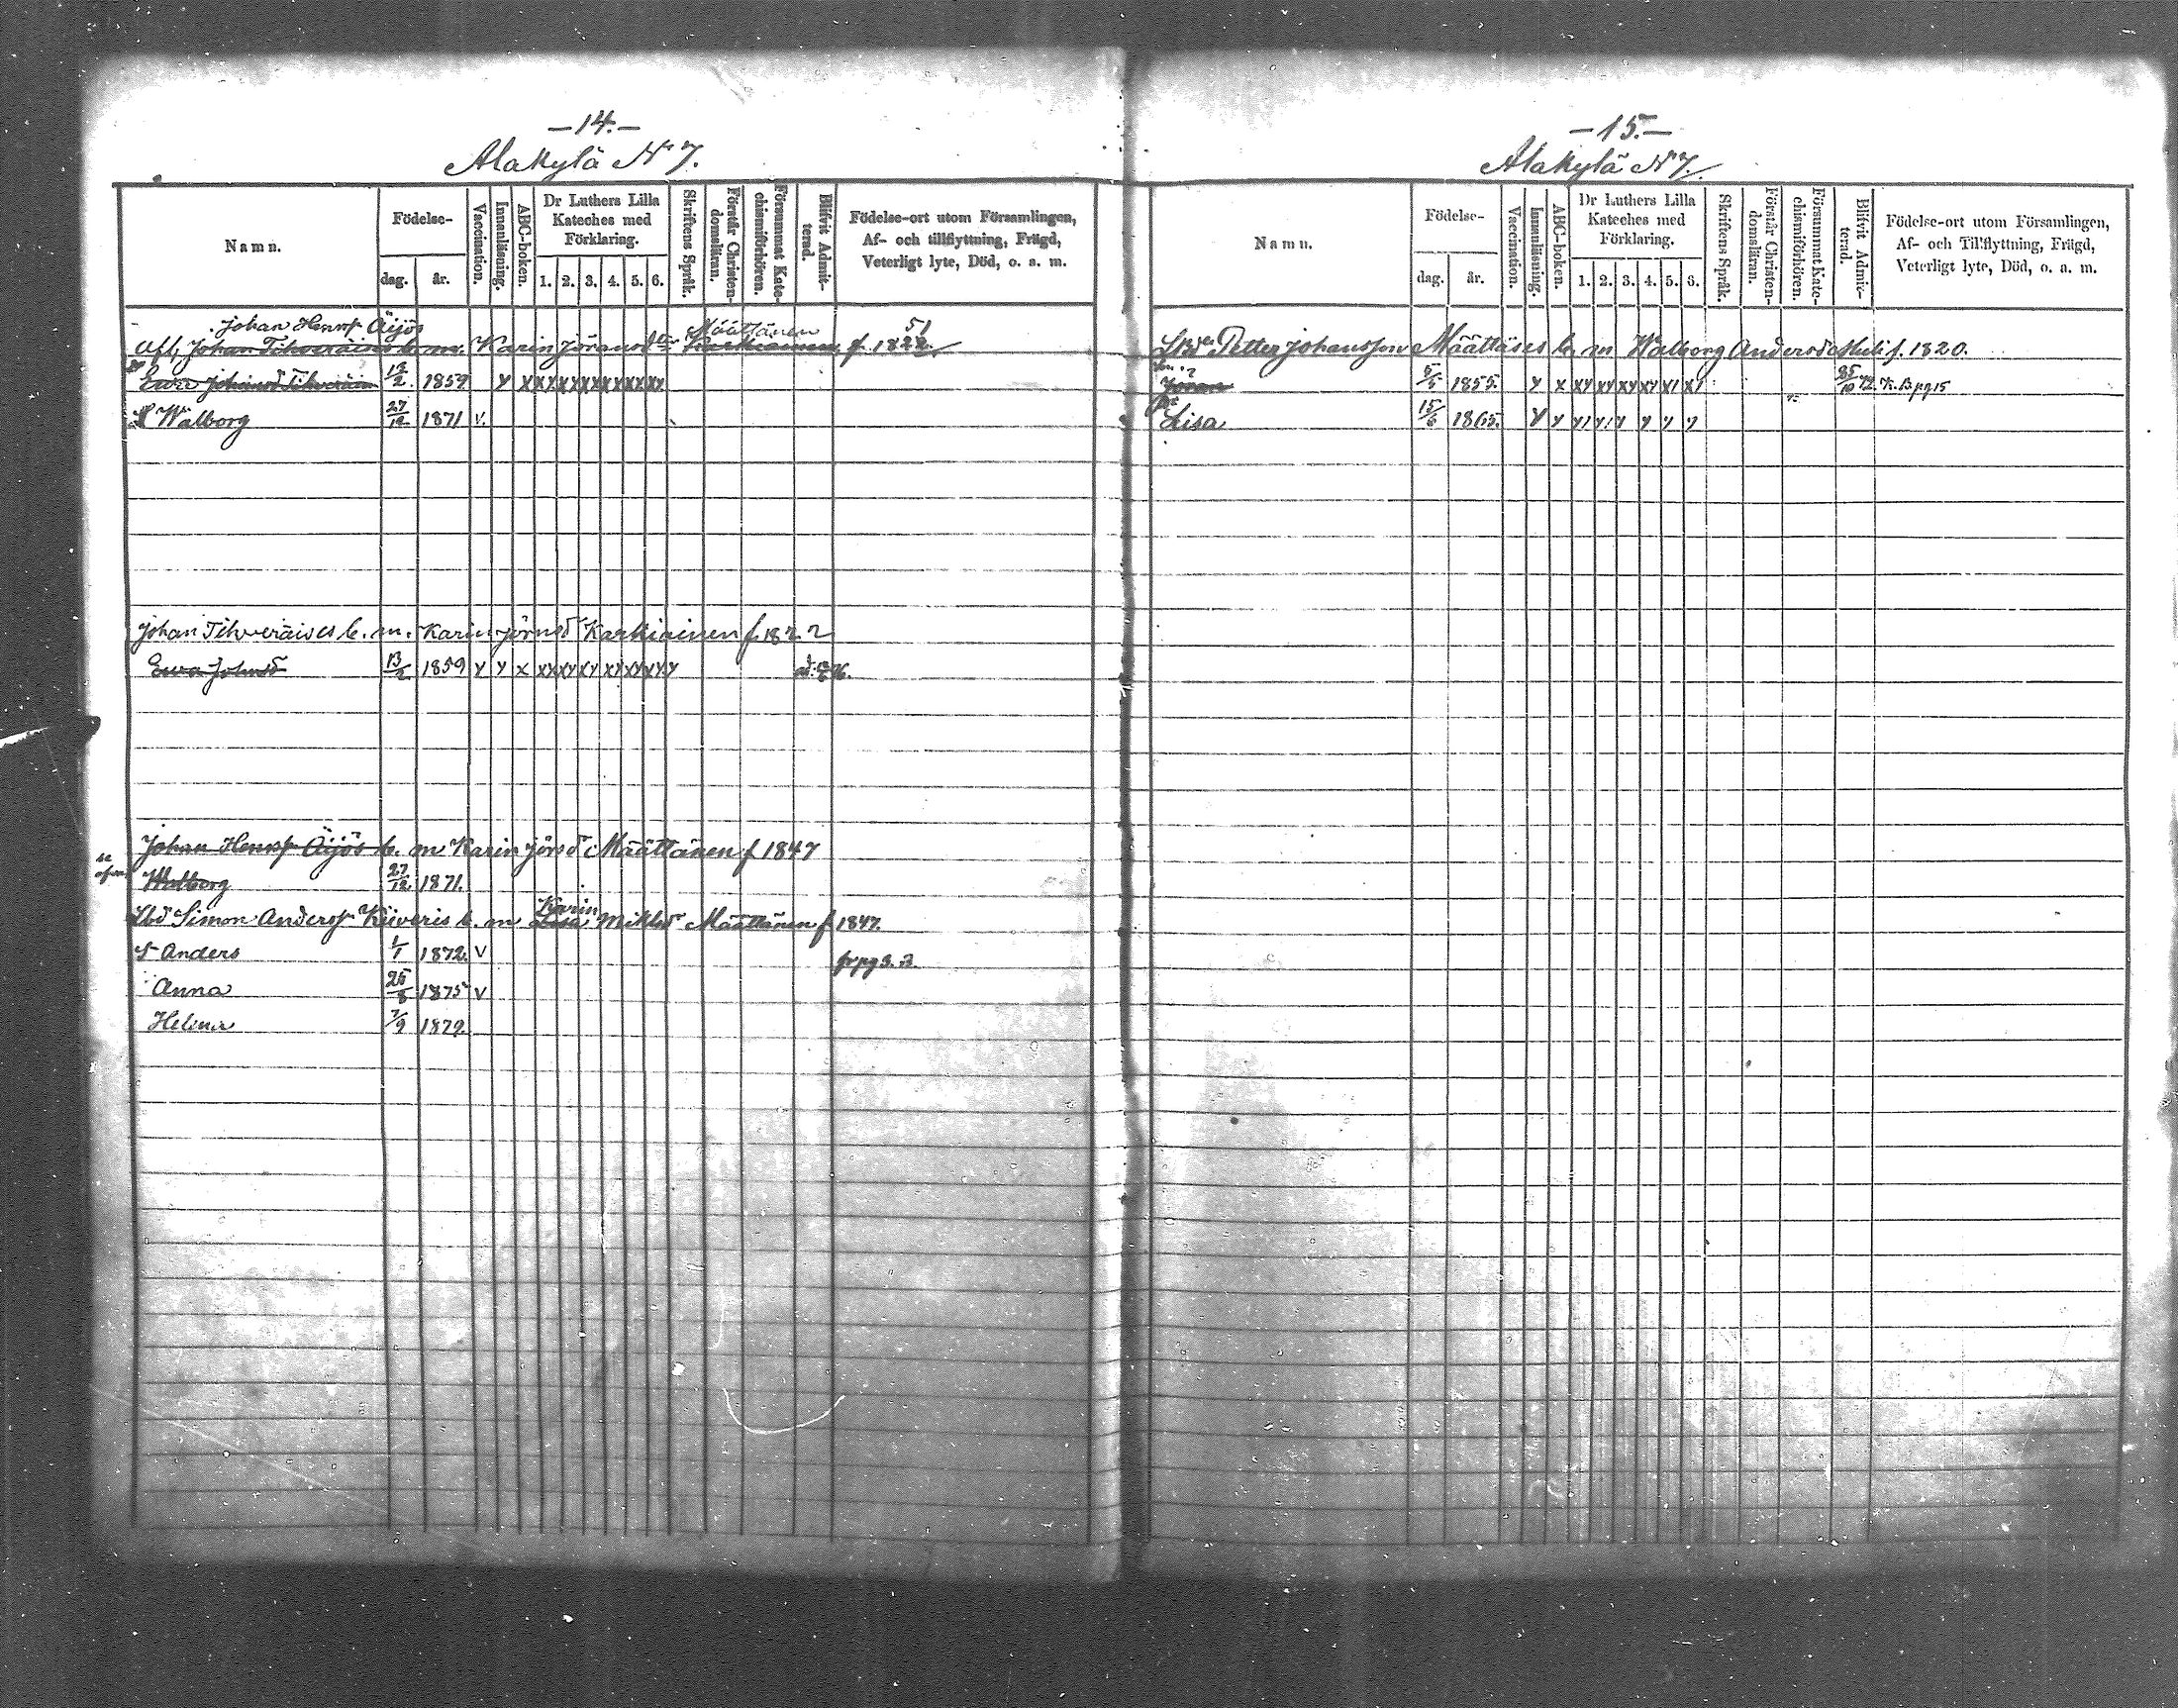 -14.-
Alakylä N 7.
Namn.
Födelse-
dag.
år.
Vaccination.
Innanläsning.
ABC-boken.
Dr Luthers Lilla
Kateches med
Förklaring.
1. 2. 3. 4. 5. 6.
Skriftens Språk.
Förstår Christen-
domsläran.
Försummat Kate-
chismiförhören.
Blifvit Admit-
terad.
Födelse-ort utom Församlingen,
Af- och tillflyttning, Frägd,
Veterligt lyte, Död, o. a. m.
Johan Henrsp Äijös Määttänen 51
Johan Tihveräises b. m. Karin Jöransdtr Karkiainen f. 1822
Ewa Johansd Tihveräin 13/2 1859 y x xx xx xx xx xx xx
Walborg 27/12 1871 v.
Johan Tihveräises b. m. Karin Jörnsd Karkiainen f. 1822
Ewa Johnsd 13/2 1859 y y x xy xy xy xy xy xy y
Johan Henrsp Äijös b. m Karin Jörsd Määttänen f 1847
Walborg 27/12 1871.
Karin
Lbd Simon Andersp Kiiveris b. m. Lisa Miklsdr Määttänen f 1847.
Anders 1/1 1872. v fr pg 3. B.
Anna 25/8 1875 v
Helena 7/9 1879.
-15.-
Alakylä N 7.
Namn.
Födelse-
dag.
år.
Vaccination.
Innanläsning.
ABC-boken.
Dr Luthers Lilla
Kateches med
Förklaring.
1. 2. 3. 4. 5. 6.
Skriftens Språk.
Förstår Christen-
domsläran.
Försummat Kate-
chismiförhören.
Blifvit Admit-
terad.
Födelse-ort utom Församlingen,
Af- och Tillflyttning, Frägd,
Veterligt lyte, Död, o. a. m.
Petter Johansson Määttäses b. m Walborg Andersd f. 1820.
Jöran 5/5 1855. y x xy xy xy xy xy xy K. B pg 15
Lisa 15/6 1865. y y y y y y y y